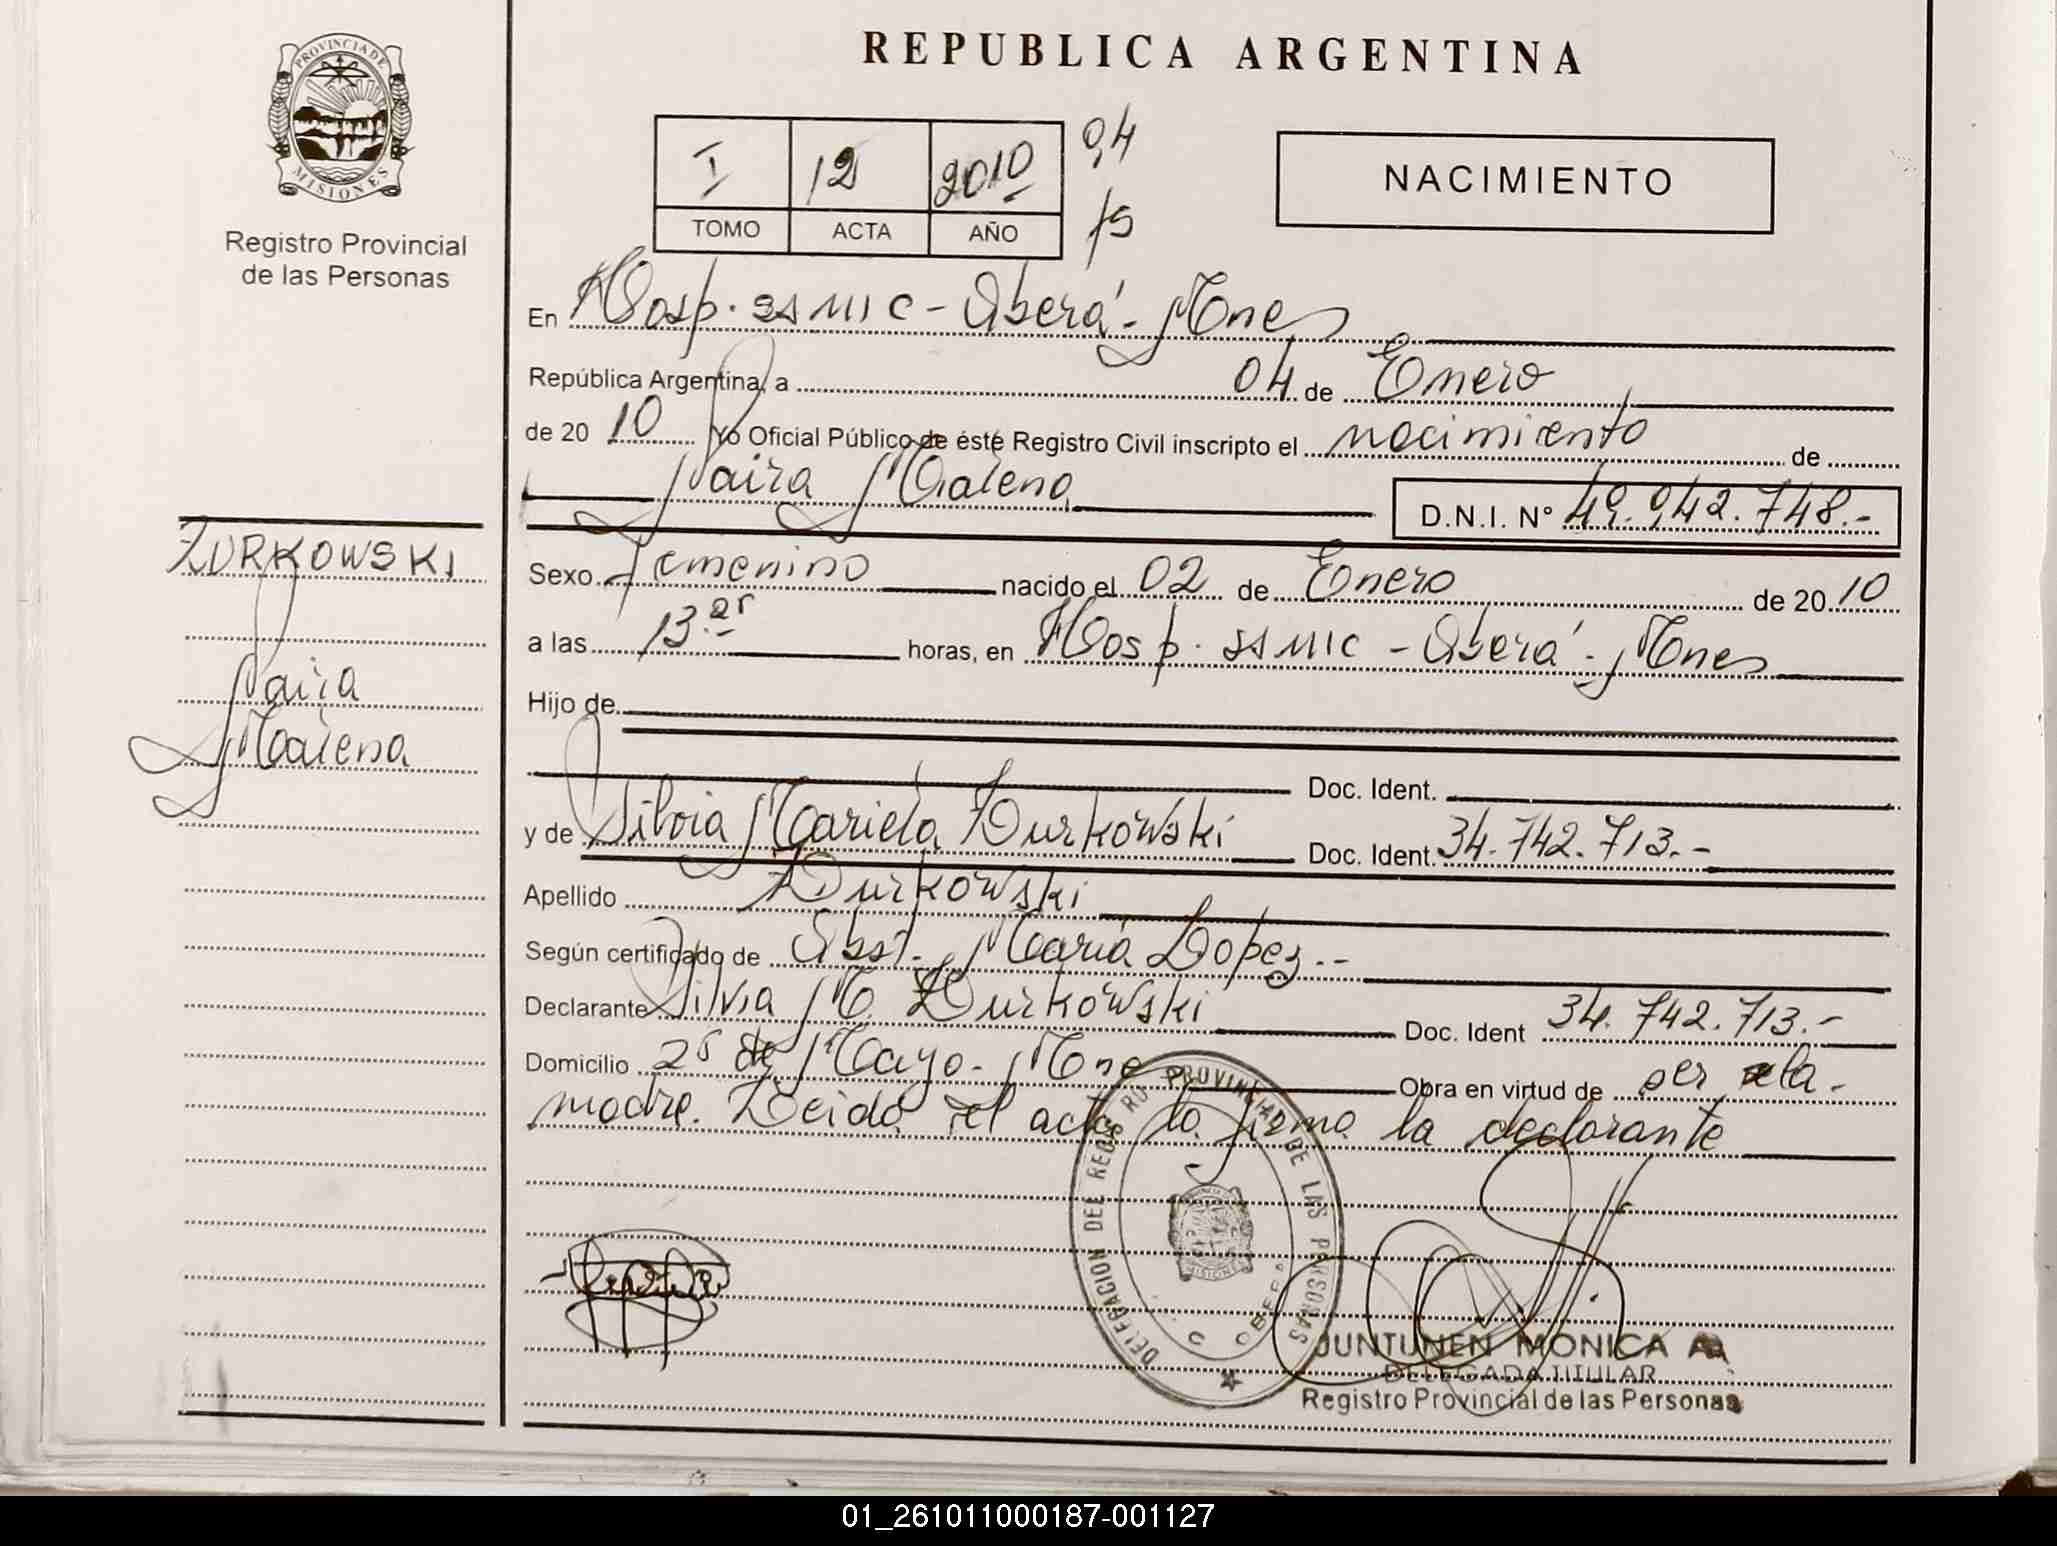 REPUBLICA ARGENTINA
PROVINCIA DE
MISIONES
Registro Provincial
de las Personas
I 12 2010
TOMO ACTA AÑO
NACIMIENTO
En Hosp. SSMIC - Oberá - Mnes
República Argentina, a 04 de Enero
de 20 10 Yo Oficial Público de éste Registro Civil inscripto el nacimiento de
Naira Malena D.N.I. Nº 49.942.748.-
ZURKOWSKI
Naira
Malena
Sexo Femenino nacido el 02 de Enero de 20 10
a las 13. horas, en Hosp. SSMIC - Oberá - Mnes
Hijo de
Doc. Ident.
y de Silvia Mariela Zurkowski Doc. Ident. 34.742.713.-
Apellido Zurkowski
Según certificado de Obst. María Lopez.-
Declarante Silvia M. Zurkowski Doc. Ident 34.742.713.-
Domicilio 25 de Mayo - Mnes Obra en virtud de ser la
madre. Leida el acta la firma la declarante
DELEGACION DEL REGISTRO PROVINCIAL DE LAS PERSONAS
MISIONES
OBERA
JUNTUNEN MONICA A
DELEGADA TITULAR
Registro Provincial de las Personas
01_261011000187-001127